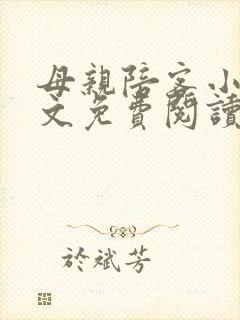 母親陪客小
文免費閱讀
於斌芳